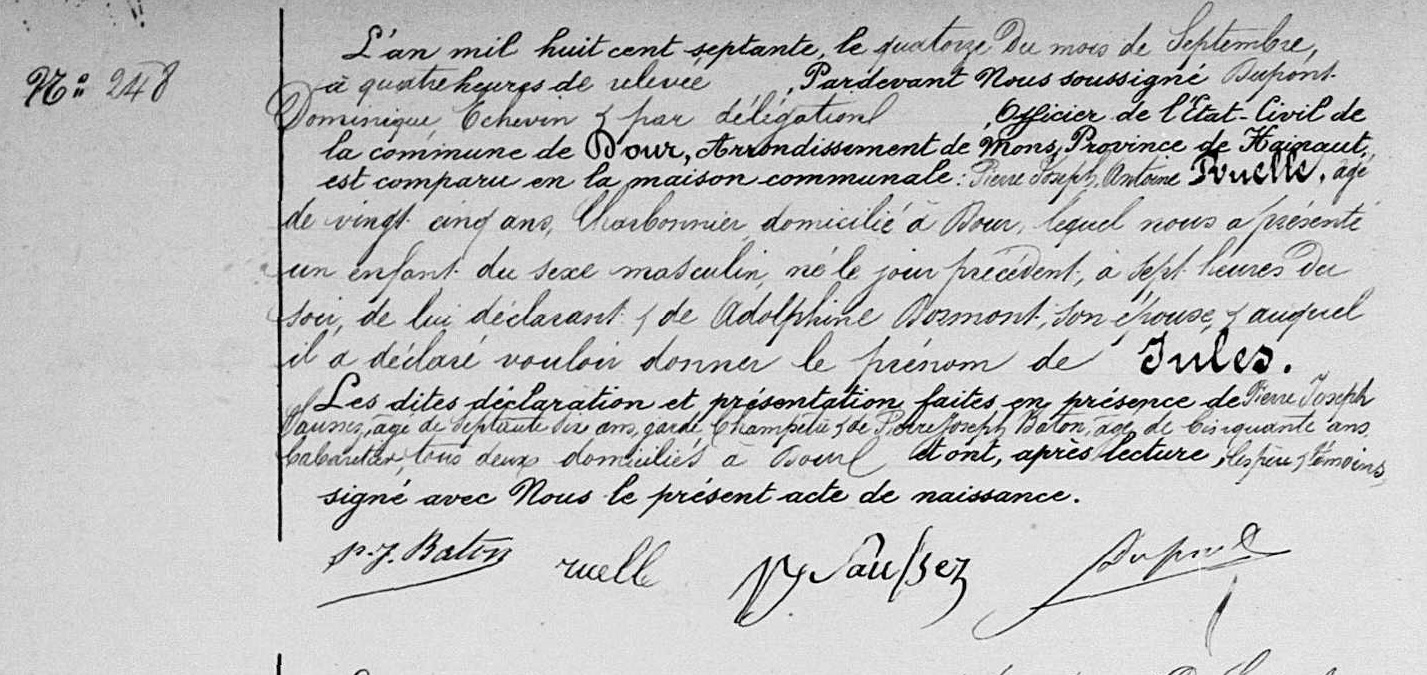 N° 248
L'an mil huit cent septante, le quatorze du mois de Septembre,
à quatre heures de relevée, Pardevant Nous soussigné Dupont
Dominique Echevin & par délégation, Officier de l'Etat-Civil de
la commune de Dour, Arrondissement de Mons, Province de Hainaut,
est comparu en la maison communale : Pierre Joseph Antoine Ruelle, âgé
de vingt cinq ans, Charbonnier domicilié à Dour, lequel nous a présenté
un enfant du sexe masculin, né le jour précédent, à sept heures du
soir, de lui déclarant & de Adolphine Dormont, son épouse, & auquel
il a déclaré vouloir donner le prénom de Jules.
Les dites déclaration et présentation faites en présence de Pierre Joseph
Saussez, âgé de septante ans, garde Champêtre & de Pierre Joseph Baton, âgé de Cinquante ans
Cabaretier, tous deux domiciliés à Dour et ont, après lecture, les père & témoins,
signé avec Nous le présent acte de naissance.
p. J. Baton ruelle Saussez Dupont